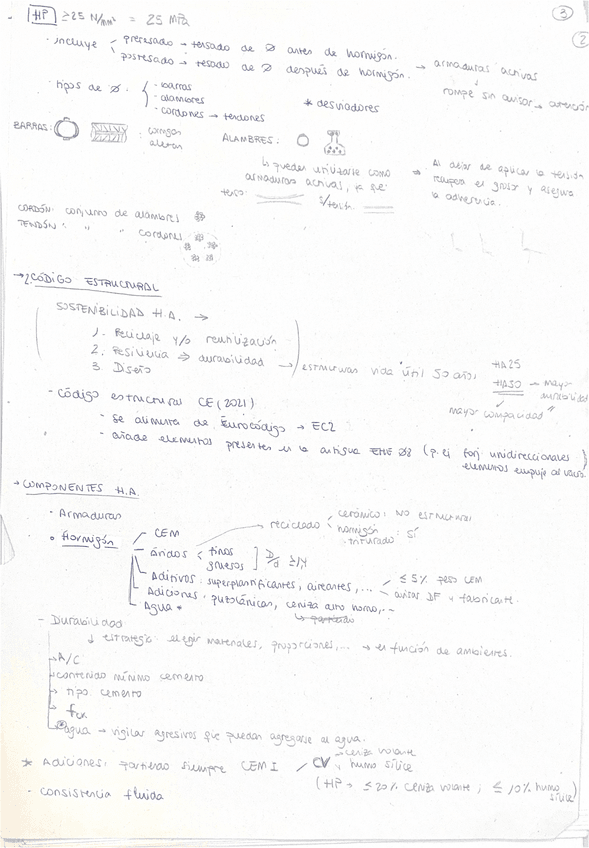 3
2
- HP ≥ 25 N/mm² = 25 MPa
· incluye pretesado → tensado de Ø antes de hormigón.
postesado → tesado de Ø después de hormigón. → armaduras activas
rompe sin avisar → atención
· tipos de Ø. - barras
- alambres
- cordones → tendones
* desviadores
BARRAS: : corrugas aletas
ALAMBRES:
↳ pueden utilizarse como armaduras activas, ya que
tens: s/tens:
→ Al dejar de aplicar la tensión recupera el grosor y asegura la adherencia.
CORDÓN: conjunto de alambres
TENDÓN: " " cordones
→ 2. CÓDIGO ESTRUCTURAL
SOSTENIBILIDAD H.A. →
1. Reciclaje y/o reutilización
2. Resiliencia ⇒ durabilidad → estructuras vida útil 50 años
3 Diseño
HA25
HA30 → mayor durabilidad
mayor compacidad"
- Código estructural CE (2021)
- Se alimenta de Eurocódigo → EC2
- añade elementos presentes en la antigua EHE 08 (p. ej forj unidireccionales
elementos empuje al vacío)
→ COMPONENTES H.A.
· Armaduras
· Hormigón CEM
- áridos finos
gruesos ] D/d ≥ 1,4
reciclado cerámico: NO estructural
hormigón triturado: SÍ
- Aditivos: superplastificantes, aireantes, ... ≤ 5% peso CEM
avisar DF y fabricante.
- Adiciones: puzolánicas, ceniza alto horno, ...
- Agua *
- Durabilidad
↓ estrategia: elegir materiales, proporciones, ... → en función de ambientes.
→ A/C
→ contenido mínimo cemento
→ tipo cemento
→ fck
* agua → vigilar agresivos que puedan agregarse al agua.
* Adiciones: partiendo siempre CEM I / CV ceniza volante
y humo sílice
(HP → ≤ 20% ceniza volante; ≤ 10% humo sílice)
- consistencia fluida